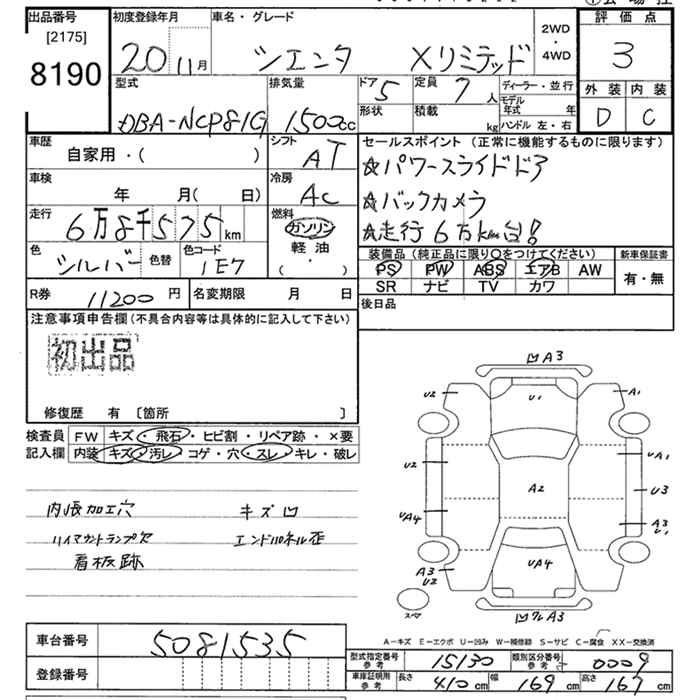 出品番号 初度登録年月 車名・グレード 評価点
[2175]
8190 20 11月 シエンタ Xリミテッド 2WD・4WD 3
型式 排気量 ドア 5 定員 7人 ディーラー・並行 外装 内装
DBA-NCP81G 1500cc 形状 積載 kg モデル年式 年 D C
ハンドル 左・右
車歴 シフト セールスポイント (正常に機能するものに限ります)
自家用・( ) AT ☆パワースライドドア
車検 冷房
年 月(日) AC ☆バックカメラ
走行 燃料
6万8千575km ガソリン ☆走行6万km台!
色 色替 色コード 軽油 装備品 (純正品に限り○をつけてください) 新車保証書
シルバー 1E7 ・( ) PS PW ABS エアB AW 有・無
SR ナビ TV カワ
R券 11200円 名変期限 月 日 後日品
注意事項申告欄 (不具合内容等は具体的に記入して下さい)
初出品
修復歴 有 [箇所 ]
検査員 FW キズ・飛石・ヒビ割・リペア跡・×要
記入欄 内装 キズ・汚レ・コゲ・穴・スレ・キレ・破レ
内張加工穴 キズ凹
ハイマウントランプ欠 エンドパネル歪
看板跡
凹A3
U2 U1 A1
U2 UA1
A2 U3
UA4 A3
U1
A3 UA4
U2
スペア
A-キズ E-エクボ U-凹み W-補修跡 S-サビ C-腐食 XX-交換済
車台番号 5081535
登録番号
型式指定番号 参考 15130 類別区分番号 参考 0009
車庫証明用 参考 長さ 410cm 幅 169cm 高さ 167cm